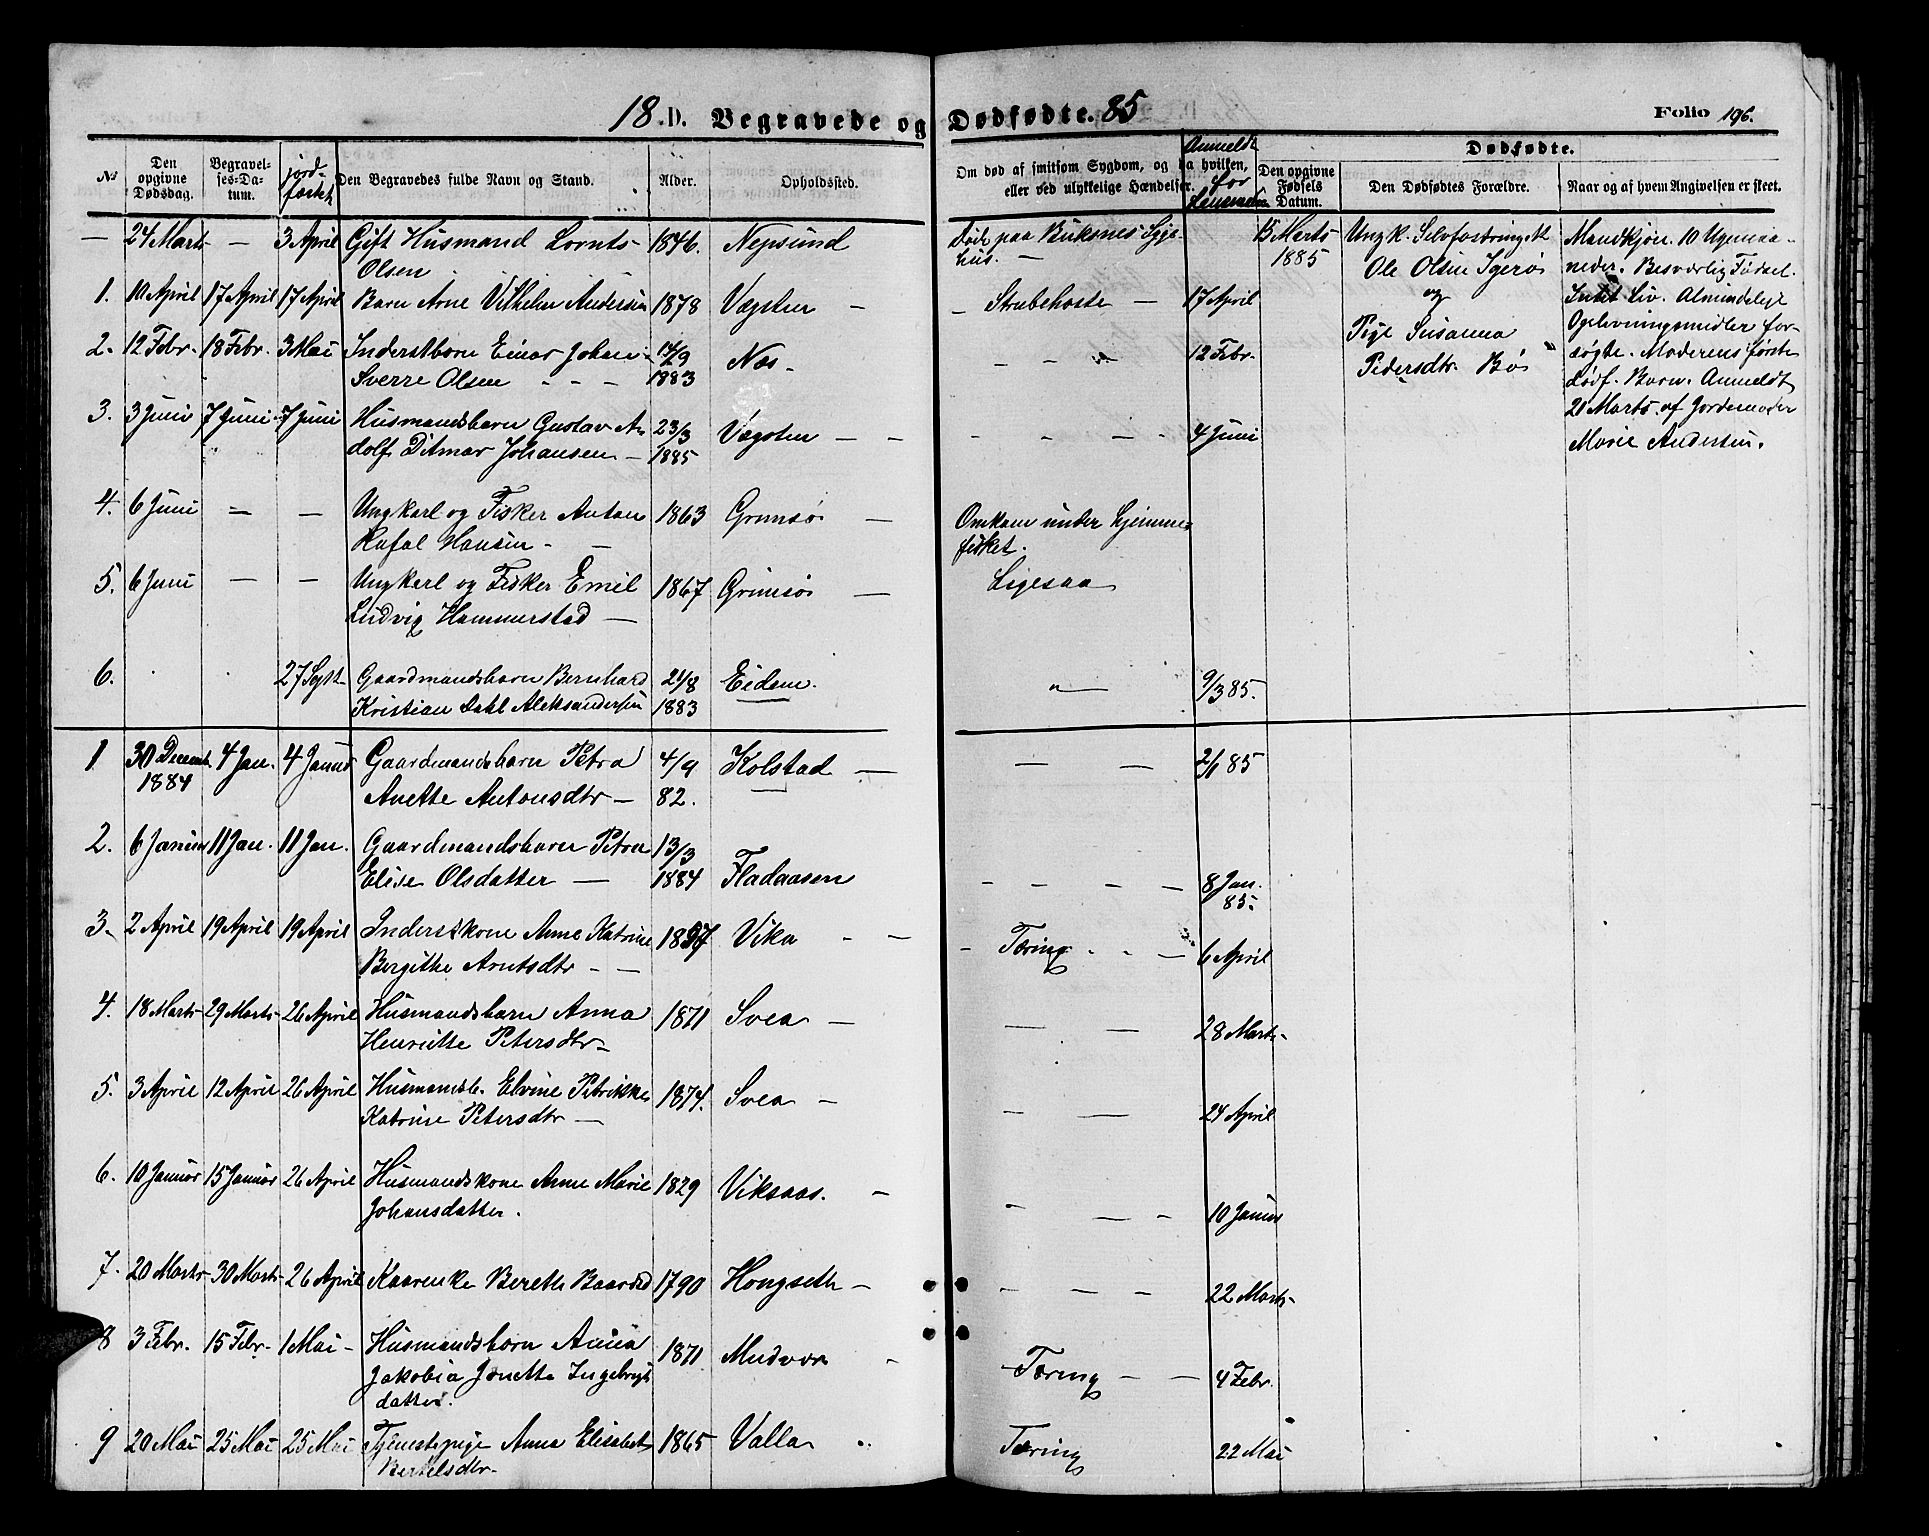 18 D. Begravede og Dødfødte. 85
Folio 196.
No
Den opgivne Dødsdag.
Begravel-ses-Da-tum.
jord-fæstet
Den Begravedes fulde Navn og Stand.
Alder.
Opholdssted.
Om død af smitsom Sygdom, og da hvilken,
eller ved ulykkelige Hændelser.
Anmeldt for Lensmann
Den opgivne Fødsels Datum.
Dødfødte.
Den Dødfødtes Forældre.
Naar og af hvem Angivelsen er skeet.
— 24 Marts — 3 April Gift Husmand Lornts 1846. Nepsund
Olsen
Døde paa Buksnes Syge-
hus. —
15 Marts
1885
Ungk. Selvfostringett
Ole Olsen Igerø
og
Pige Susanna
Pedersdtr. Bø
Mandkjøn. 10 Ugemaa-
neder. Besværlig Fødsel.
Intet Liv. Almindelige
Oplivningsmidler for-
søgte. Moderens første
Dødf. Barn. Anmeldt
20 Marts af Jordemoder
Marie Andersen.
1. 10 April 17 April 17 April Barn Arne Vilhelm Andersen 1878 Vægsten —
— Strubehoste — 17 April
2. 12 Febr. 18 Febr. 3 Mai Inderstbarn Einar Johan 14/9 Næs.
Sverre Olsen — — — 1883
— — " 12 Febr.
3. 3 Juni 7 Juni 7 Juni Husmandsbarn Gustav A- 23/3 Vægsten — —
dolf Ditmar Johansen — 1885
— — — 4 Juni
4. 6 Juni — — Ungkarl og Fisker Anton 1863 Grimsø —
Rafal Hansen — —
Omkom under Hjemme-
fisket.
5. 6 Juni — — Ungkarl og Fisker Emil 1867 Grimsø —
Ludvig Hammerstad —
Ligesaa
6. 27 Sept. Gaardmandsbarn Bernhard 21/8 Eidem.
Kristian Dahl Aleksandersen 1883
" — 9/3 85.
1 30 Decemb. 4 Jan. 4 Januar Gaardmandsbarn Petra 4/9 Kolstad —
1884 Anette Antonsdtr — 82.
— — 2/1 85
2. 6 Januar 11 Jan. 11 Jan. Gaardmandsbarn Petra 13/3
Elise Olsdatter — 1884 Fladaasen
— — — — 8 Jan.
85.
3. 2 April 19 April 19 April Inderstkone Anne Katrine 1857 Vika — —
Bergithe Arntsdtr — —
— Tæring — — — 6 April
4. 18 Marts 29 Marts 26 April Husmandsbarn Anna 1871 Svea —
Henriette Petersdtr —
— — 28 Marts
5. 3 April 12 April 26 April Husmandsb. Elvine Petrikke 1874. Svea —
Katrine Petersdtr —
— — 24 April
6. 10 Januar 15 Januar 26 April Husmandskone Anne Marie 1829 Viksaas. —
Johansdatter.
— — — 10 Januar
7. 20 Marts 30 Marts 26 April Kaarenke Bereth Baardsd 1790 Hongseth —
— — — — 22 Marts
8 3 Febr. 15 Febr. 1 Mai — Husmandsbarn Anna 1871 Mudvær —
Jakobia Jonetta Ingebrigt
datter.
Tæring — — 4 Febr.
9 20 Mai 25 Mai 25 Mai Tjenestepige Anna Elisabet 1865 Valla "
Bertelsdtr.
Tæring 22 Mai